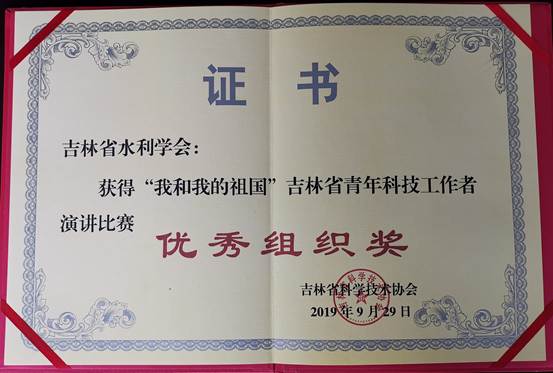 证 书
吉林省水利学会：
获得“我和我的祖国”吉林省青年科技工作者
演讲比赛
优秀组织奖
吉林省科学技术协会
2019年9月29日